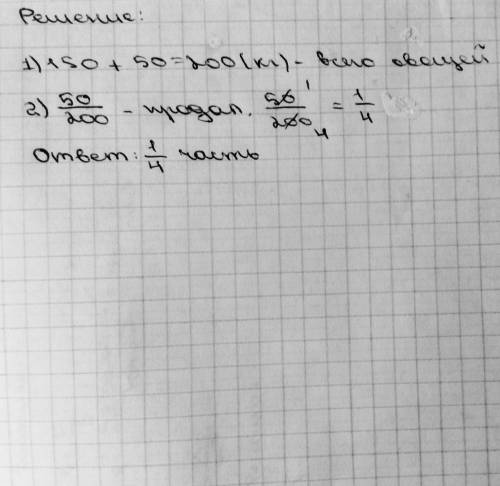 Решение:
1) 150 + 50 = 200 (кг) - всего овощей
2) 50/200 - продал. 50/200 1 4 = 1/4
Ответ: 1/4 часть